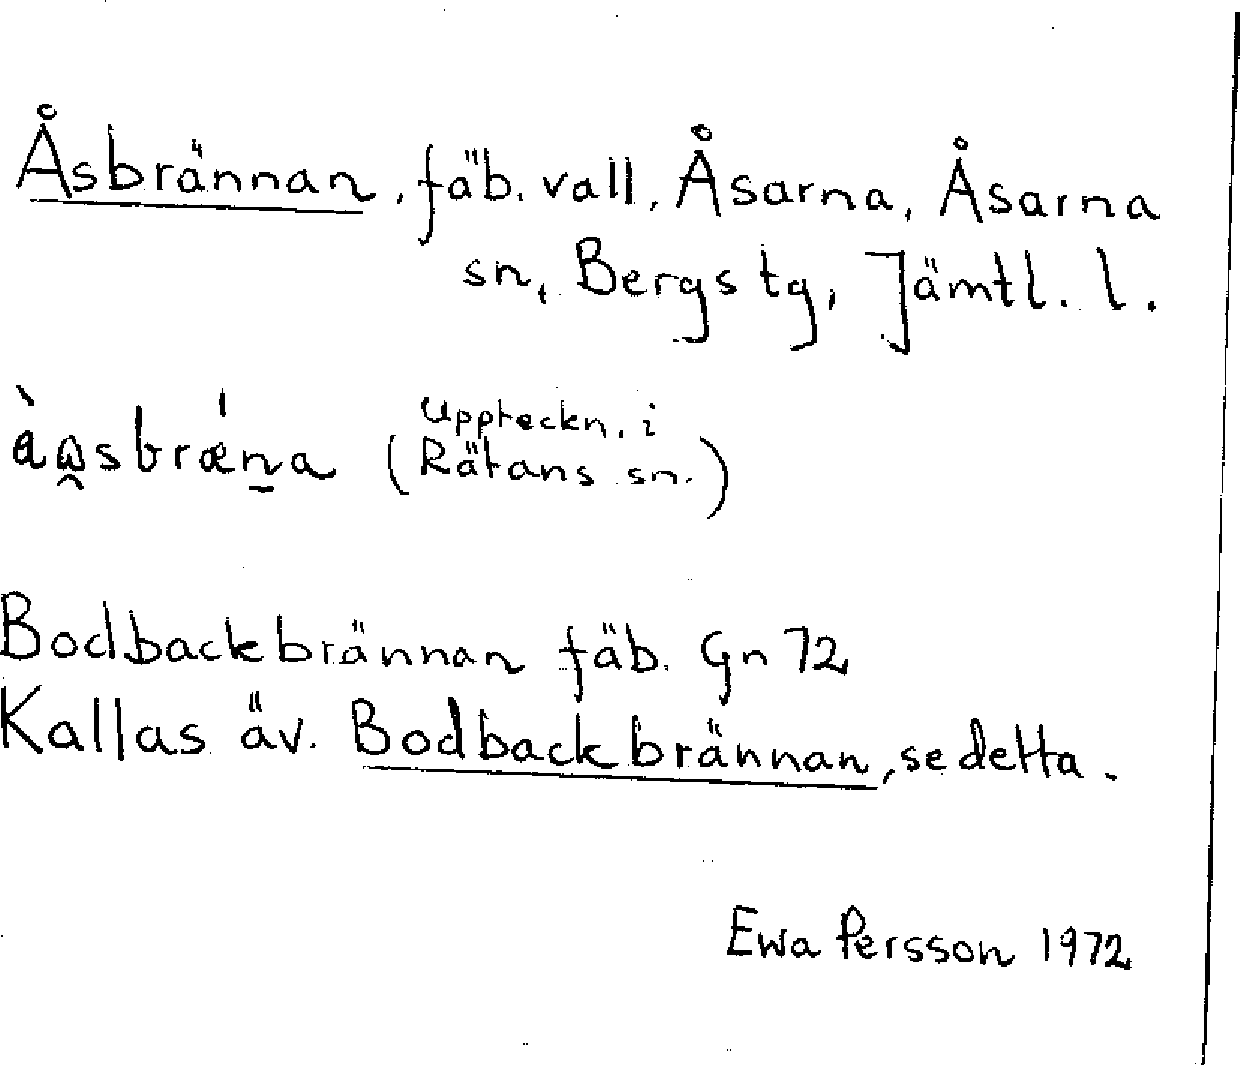 Åsbrännan, fäb. vall, Åsarna, Åsarna
sn, Bergs tg, Jämtl. l.
(Uppteckn. i
Rätans sn.)
Bodbackbrännan fäb. Gn 72
Kallas äv. Bodbackbrännan, se detta.
Ewa Persson 1972